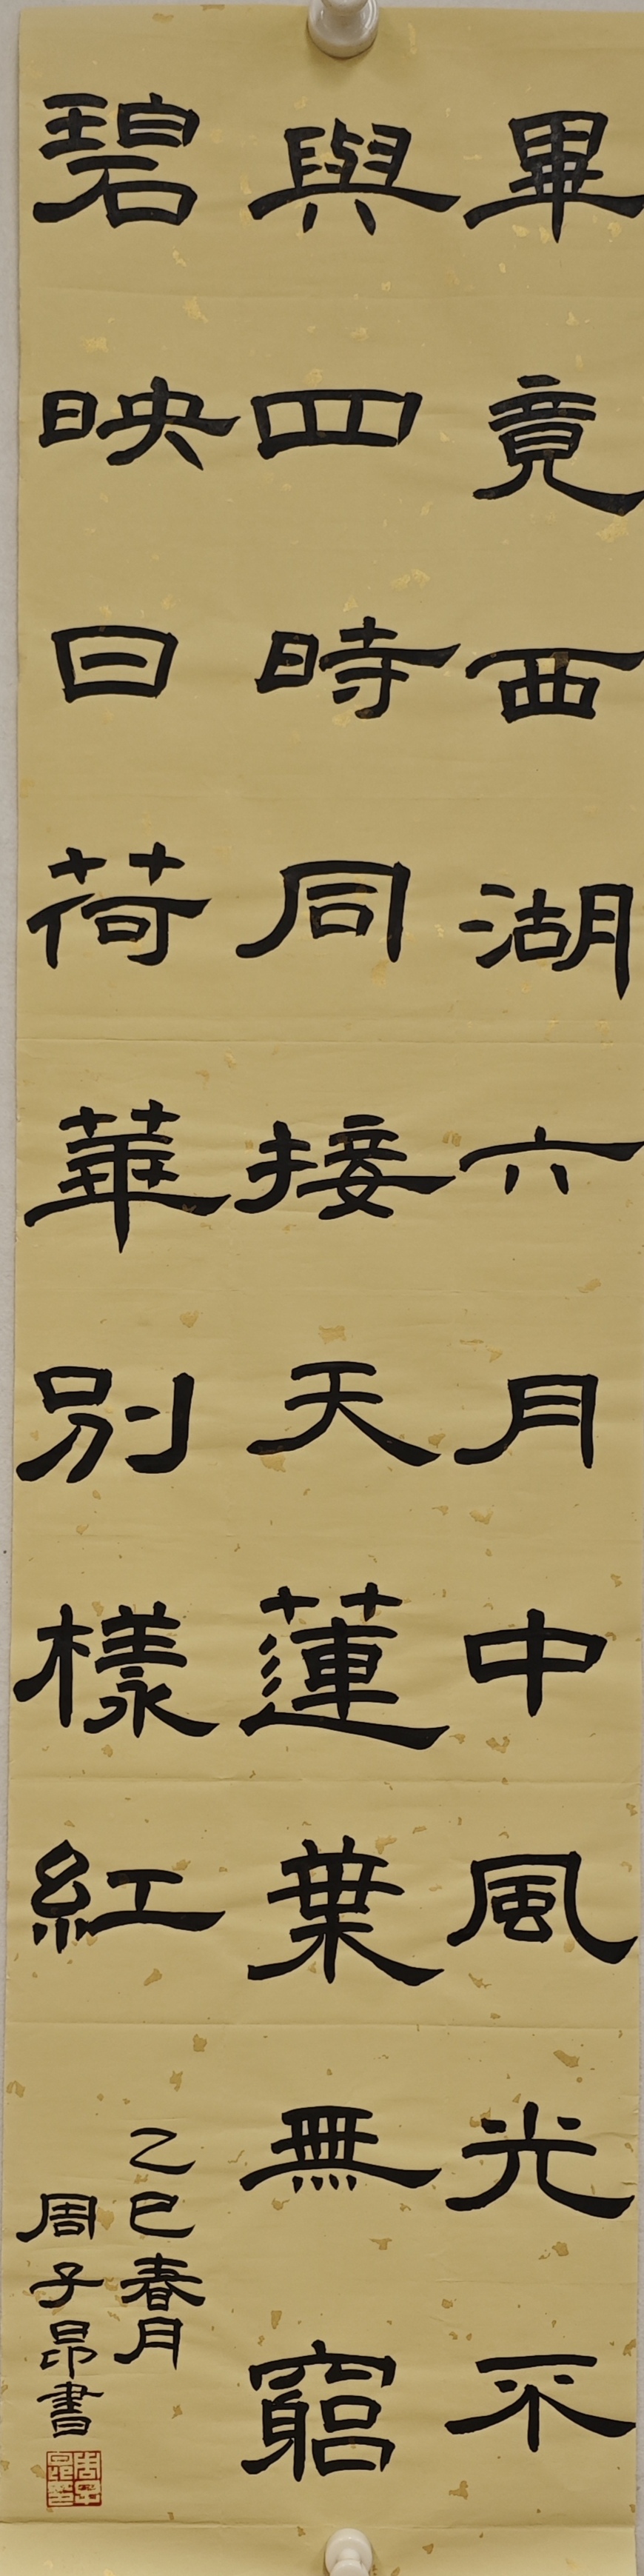 畢竟西湖六月中風光不
與四時同接天蓮葉無窮
碧映日荷華別樣紅
乙巳春月
周子昂書
周子昂印